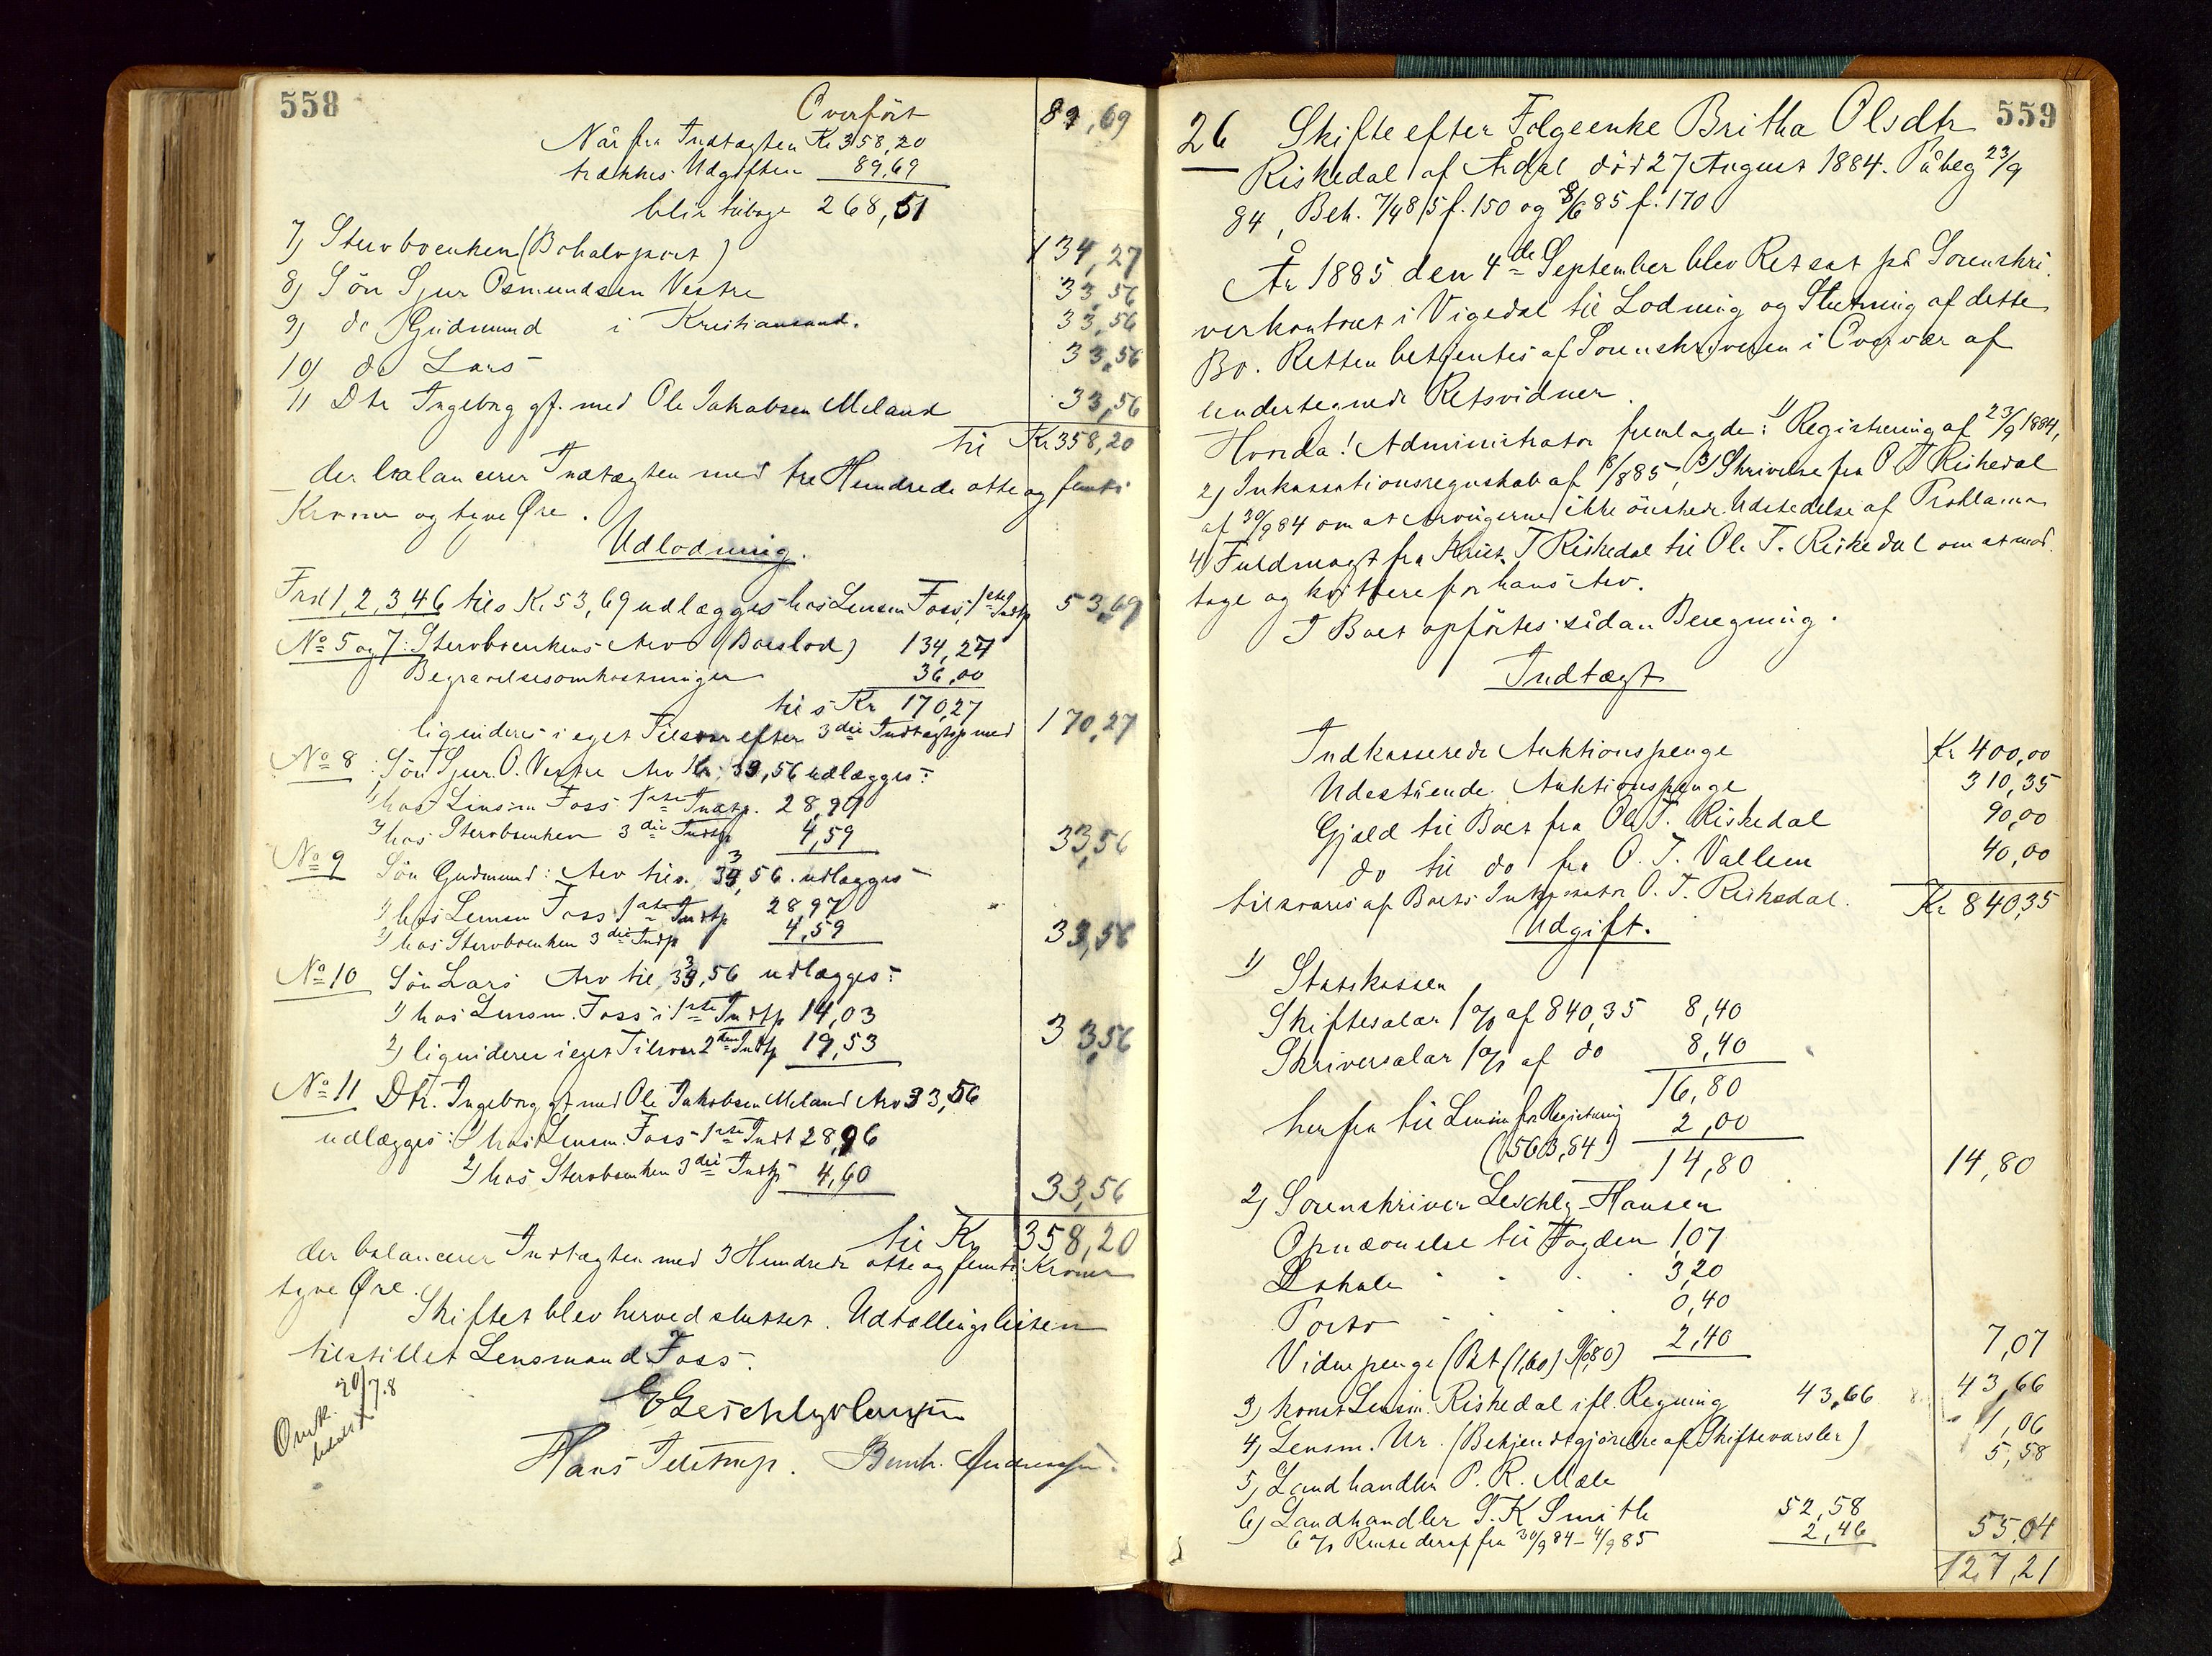 558
Overført 89,69
Når fra Indtægten Kr 358,20
trækkes Udgiften 89,69
blir tilbage 268,51
7) Stervboenken (Bohalvpart) 134,27
8) Søn Sjur Osmundsen Vestre 33,56
9) do Gudmund i Kristiansand. 33,56
10) do Lars 33,56
11 Dtr Ingeborg gf. med Ole Jakobsen Meland 33,56
til Kr 358,20
der balancerer Indtægten med tre Hundrede otte og femti
Kroner og tyve Øre.
Udlodning.
Frd 1, 2, 3, 4 6 tils Kr 53,69 udlægges hos Lensm Foss, 1ste Indtp 53,69
No 5 og 7: Stervboenkens Arv (Boeslod) 134,27
Begravelsesomkostninger 36,00
tils Kr 170,27
liqvideres i eget Tilsvar efter 3die Indtægtsp med 170,27
No 8 Søn Sjur O. Vestre Arv Kr 33,56 udlægges:
1) hos Lensm Foss 1ste Indtp. 28,97
2) hos Stervboenken 3die Indtp 4,59 33,56
No 9 Søn Gudmund: Arv tils. 33,56 udlægges
1) hos Lensm Foss 1ste Indtp 28,97
2) hos Stervboenken 3die Indtp 4,59 33,56
No 10 Søn Lars Arv til 33,56 udlægges:
1) hos Lensm. Foss i 1ste Indtp 14,03
2) liqviderer i eget Tilsvar 2den Indtp 19,53 33,56
No 11 Dtr. Ingeborg gf med Ole Jakobsen Meland Arv 33,56
udlægges: 1) hos Lensm. Foss 1ste Indt 28,96
2) hos Stervboenken 3die Indtp 4,60 33,56
til Kr 358,20
der balancerer Indtægten med 3 Hundrede otte og femti Kroner
tyve Øre.
Skiftet blev herved sluttet. Udtællingslisten
tilstillet Lensmand Foss.
20/7.8
Hans Tetstrup. Bernh. Andersen.
26 Skifte efter Følgeenke Britha Olsdtr 559
Riskedal af Årdal død 27 August 1884. Påbeg 23/9
84, Beh. 7/4 85 f. 150 og 8/6 85 f. 170
År 1885 den 4de September blev Ret sat på Sorenskri-
verkontoret i Vigedal til Lodning og Slutning af dette
Bo. Retten betjentes af Sorenskriveren i Overvær af
undertegnede Retsvidner.
Hvorda! Administrator fremlagde: 1) Registrering af 23/9 1884,
2) Inkassationsregnskab af 18/8 85, 3) Skrivelse fra O T Riskedal
af 30/9 84 om at Arvingerne ikke ønsker Udstedelse af Proklama
4) Fuldmagt fra Krist. T Riskedal til Ole T. Riskedal om at mod-
tage og kvittere for hans Arv.
I Boet opførtes sådan Beregning.
Indtægt
Indkasserede Auktionspenge Kr 400,00
Udestående Auktionspenge 310,35
Gjæld til Boet fra Ole T. Riskedal 90,00
do til do fra O. T. Vallem 40,00
tilsvares af Boets Inkassator O. T. Riskedal. Kr 840,35
Udgift.
1) Statskassen
Skiftesalar 1 % af 840,35 8,40
Skriversalar 1 % af do 8,40
16,80
herfra til Lensm for Registrering 2,00
(1563,84) 14,80 14,80
2) Sorenskriver Leschly-Hansen
Opnævnelse til Fogden 1,07
Lokale 3,20
Porto 0,40
Vidnepenge (Bet (1,60) 0,80) 2,40 7,07
3) konst Lensm. Riskedal ifl. Regning 43,66 43,66
4) Lensm. Ur. (Bekjendtgjørelse af Skiftevarsler) 1,06
5) Landhandler P. R. Mæle 5,58
6) Landhandler S. K Smith 52,58
6 % Rente deraf fra 30/9 84 - 4/9 85 2,46 55,04
127,21